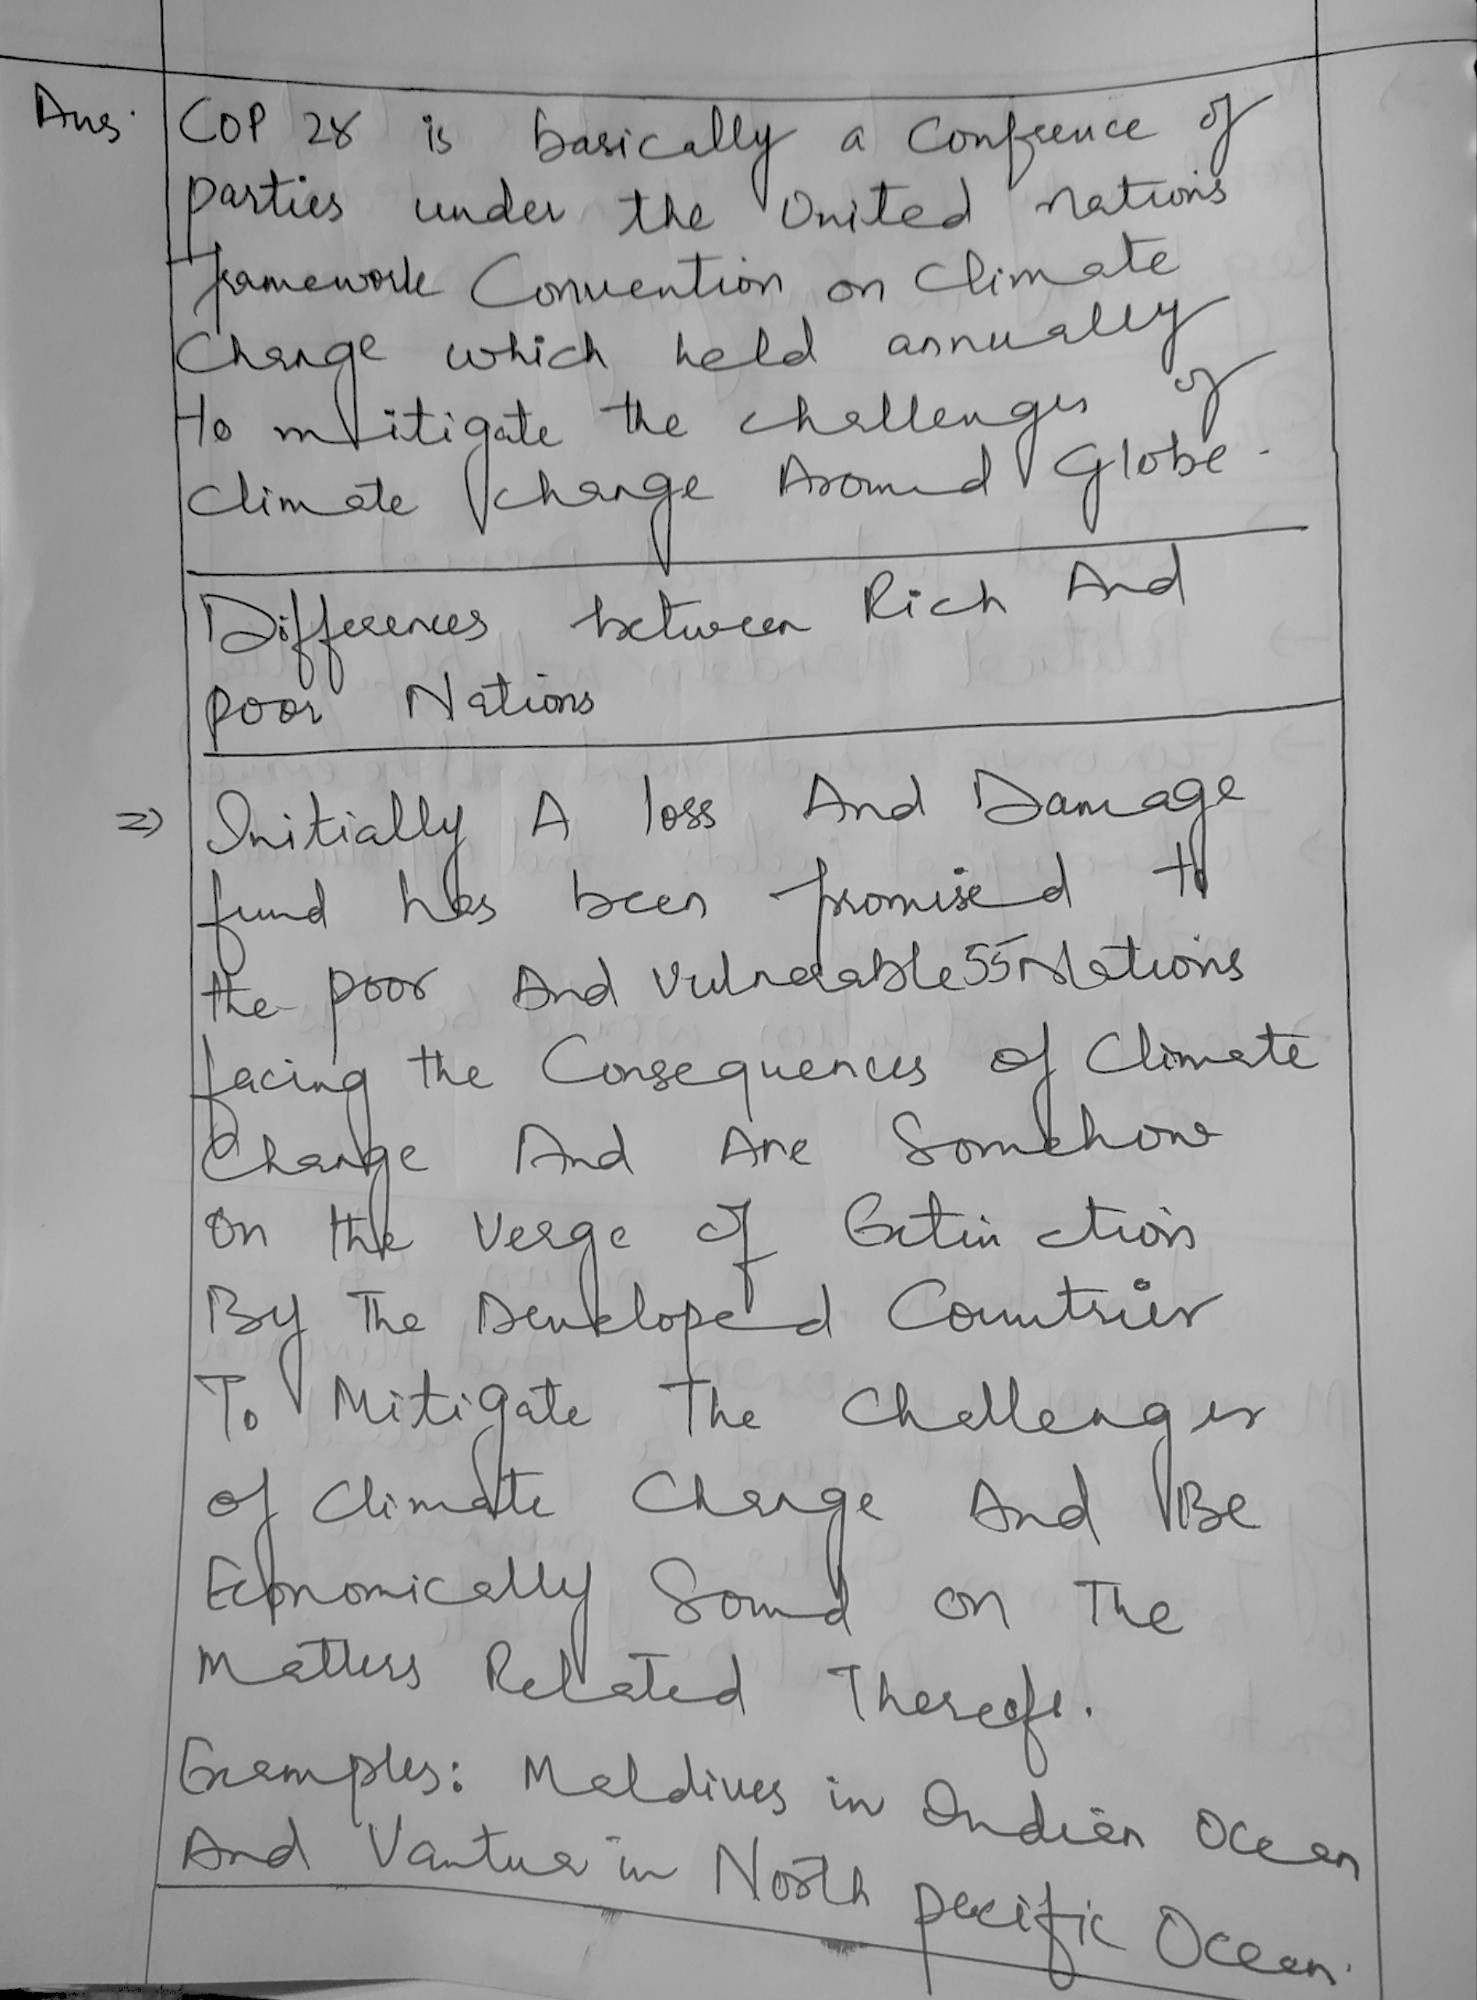 Ans. COP 28 is basically a Confrence of
parties under the United nations
framework Convention on Climate
Change which held annually
to mitigate the challenges of
climate change Around Globe.
Differences between Rich And
poor Nations
=> Initially A loss And Damage
fund has been promised to
the poor And Vulnerable 55 Nations
facing the Consequences of Climate
Change And Are Somehow
on the Verge of Extinction
By The Developed Countries
To Mitigate The Challenges
of Climate Change And Be
Economically Sound on The
Matters Related Thereof.
Examples: Maldives in Indian Ocean
And Vantua in North pacific Ocean.